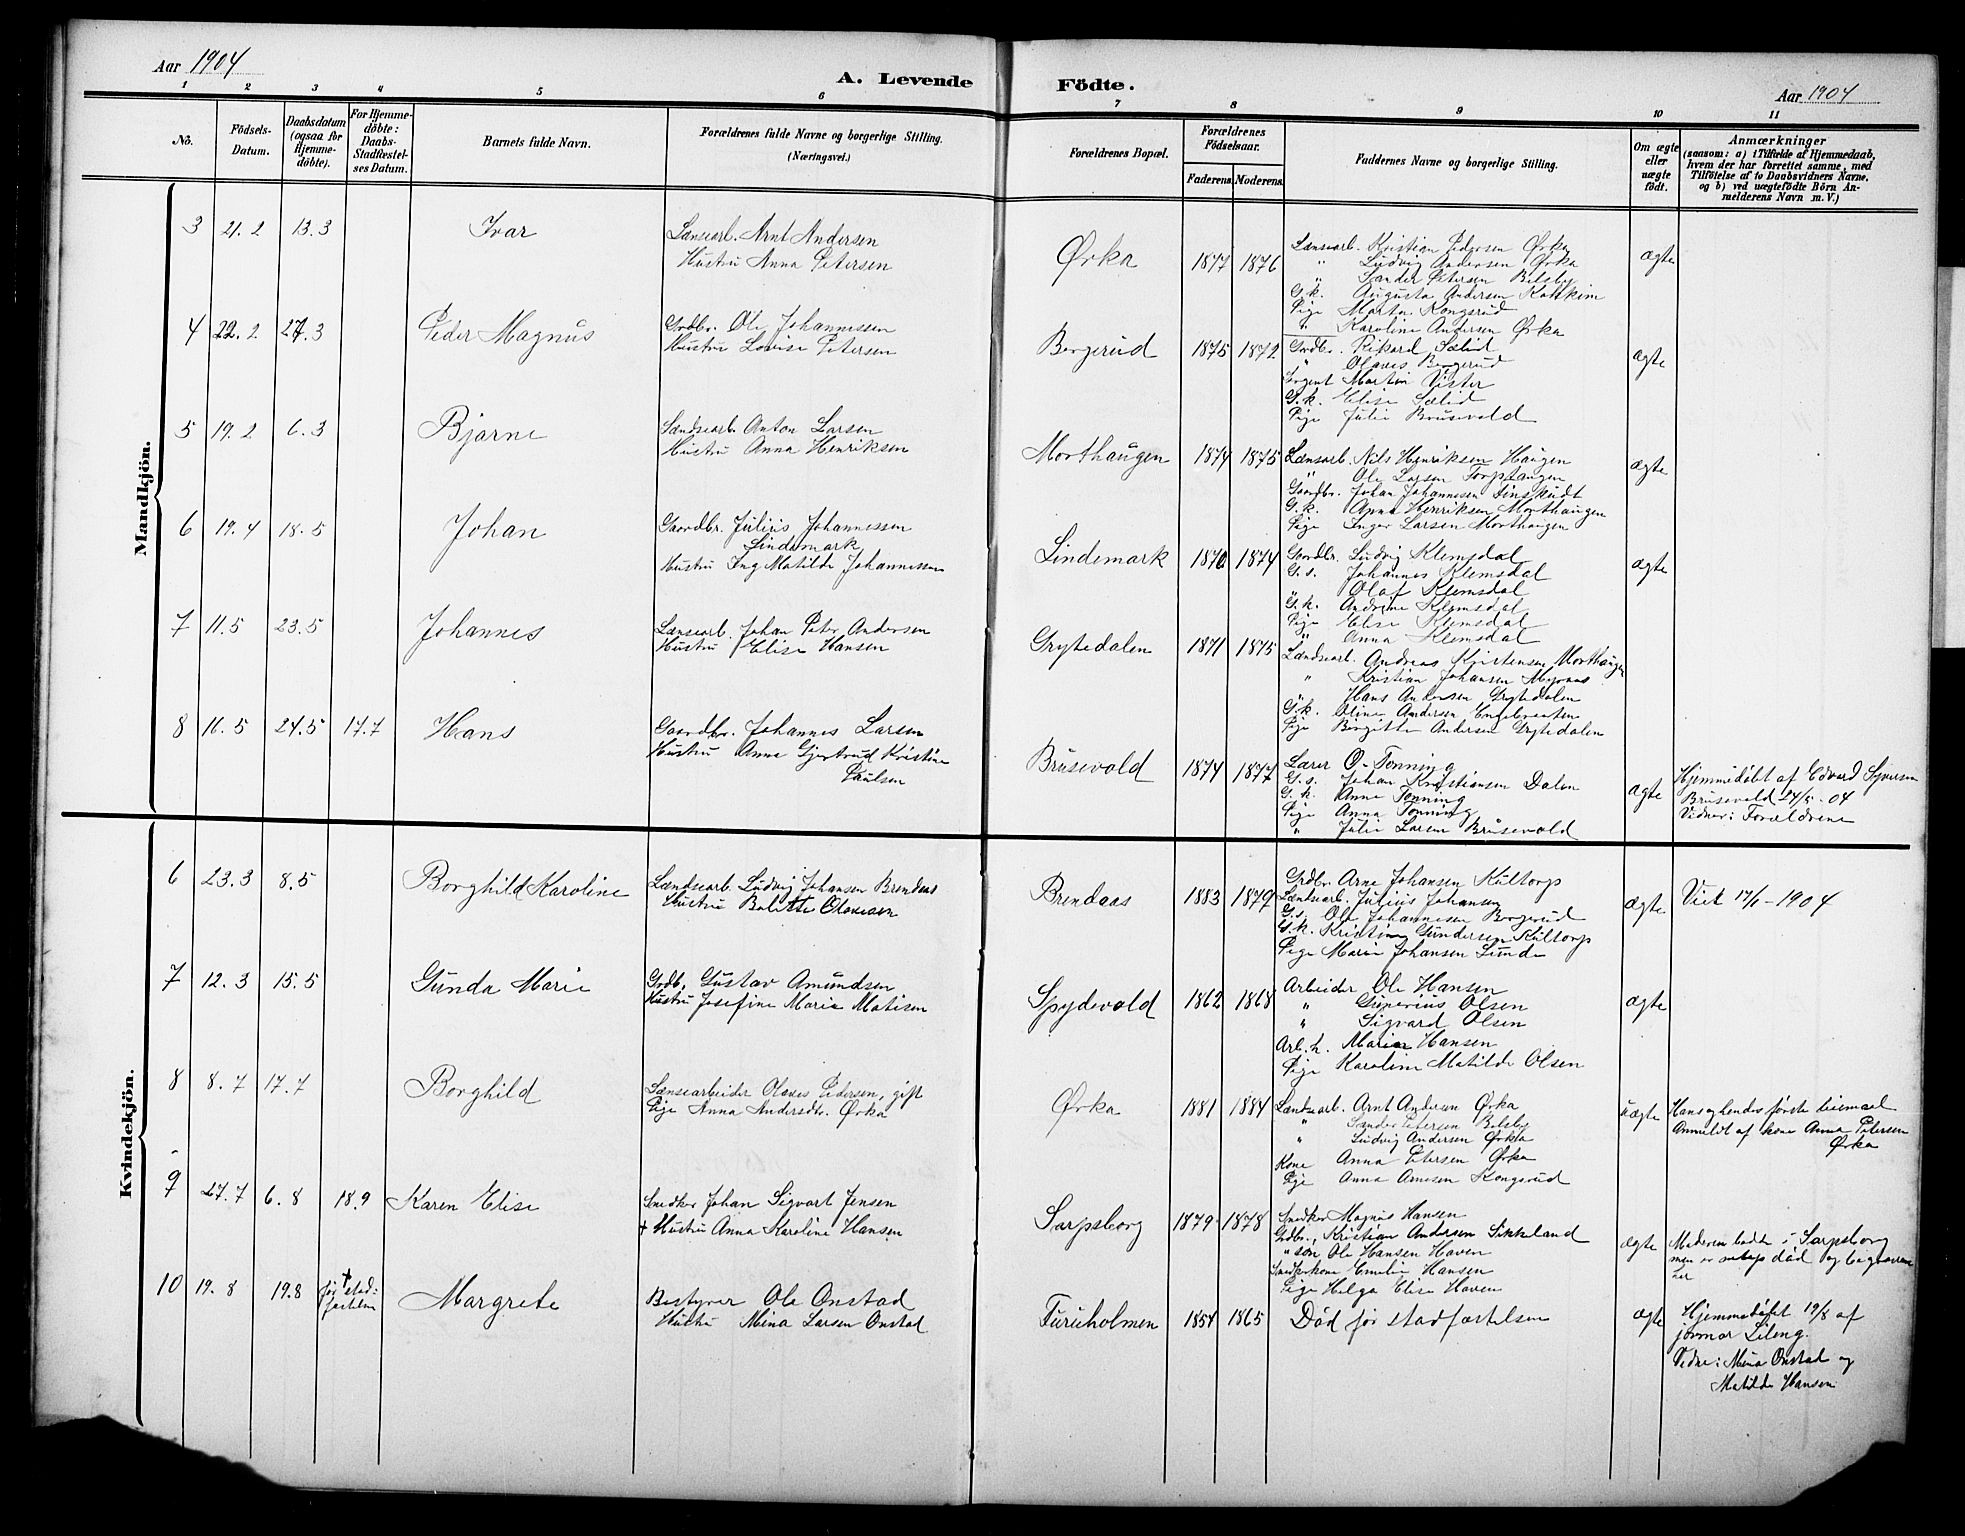 Aar 1904
A. Levende Födte.
Aar 1904
1 2 3 4 5 6 7 8 9 10 11
No.
Födsels-
Datum.
Daabsdatum
(ogsaa for
Hjemme-
döbte).
For Hjemme-
döbte:
Daabs-
Stadfæstel-
ses Datum.
Barnets fulde Navn.
Forældrenes fulde Navne og borgerlige Stilling.
(Næringsvei.)
Forældrenes Bopæl.
Forældrenes
Födselsaar.
Faderens. Moderens.
Faddernes Navne og borgerlige Stilling.
Om ægte
eller
uægte
födt.
Anmærkninger
(saasom: a) i Tilfælde af Hjemmedaab,
hvem der har forrettet samme, med
Tilföielse af to Daabsvidners Navne,
og b) ved uægtefödte Börn An-
melderens Navn m. V.)
Mandkjön.
3 21.2 13.3 Ivar
Lænsearb. Arnt Andersen
Hustru Anna Petersen
Ørka 1877 1876
Lænsearb. Kristian Pedersen Ørka
" Ludvig Andersen Ørka
" Sander Petersen Belsby
G.k. Augusta Andersen
Pige Marta Kongsrud
" Karoline Andersen Ørka
ægte
4 22.2 27.3 Peder Magnus
Grdbr. Ole Johannessen
Hustru Lovise Petersen
Bergerud 1875 1872
Grdbr. Rikard Sælid
" Olaves Bergerud
Sergent Martin Vister
G.k. Elise Sælid
Pige Julie Brusevold
ægte
5 19.2 6.3 Bjarne
Lændsearb. Anton Larsen
Hustru Anna Henriksen
Morthaugen 1874 1875
Lænsearb. Nils Henriksen Haugen
" Ole Larsen Torptangen
Gaardbr. Johan Johannesen
G.k. Anna Henriksen Morthaugen
Pige Inger Larsen Morthaugen
ægte
6 19.4 18.5 Johan
Gaardbr. Julius Johannessen
Lindemark
Hustru Ing Matilde Johannessen
Lindemark 1870 1874
Gaardbr. Ludvig Klemsdal
G.s. Johannes Klemsdal
" Olaf Klemsdal
G.k. Andrine Klemsdal
Pige Elise Klemsdal
" Anna Klemsdal
ægte
7 11.5 23.5 Johannes
Lænsearb. Johan Peter Andersen
Hustru Elise Hansen
Grytedalen 1871 1875
Lændsearb. Andreas Kristensen Morthaugen
" Kristian Johansen Myrnes
" Hans Andersen Grytedalen
G.k. Oline Andersen
Pige Birgitte Andersen Grytedalen
8 16.5 24.5 17.7 Hans
Gaardbr. Johannes Larsen
Hustru Anna Gjertrud Kristine
Paulsen
Brusevold 1874 1877
Lærer O. Tonning
G.s. Johan Kristiansen Dalen
G.k. Anne Tonning
Pige Anna Tonning
" Julie Larsen Brusevold
ægte
Hjemmedøbt af Edvard Syversen
Brusevold 24/5-04
Vidner: Forældrene
Kvindekjön.
6 23.3 8.5 Borghild Karoline
Lændsearb. Ludvig Johansen Brendaas
Hustru Bolette Olavesen
Brendaas 1883 1879
Grdbr. Arne Johansen Kultorp
Lændsearb. Julius Johansen
G.s. Ole Johannesen Bergerud
G.k. Kristine Gundersen Kultorp
Pige Marie Johansen Lunde
ægte
Viet 17/1-1904
7 12.3 15.5 Gunda Marie
Grdb. Gustav Amundsen
Hustru Josefine Marie Matisen
Spydevold 1862 1868
Arbeider Ole Hansen
" Olsen
" Sigvard Olsen
Arb.h. Marie Hansen
Pige Karoline Matilde Olsen
ægte
8 8.7 17.7 Borghild
Lænsearbeider Olaves Pedersen, gift
Pige Anna Andersdtr. Ørka
Ørka 1881 1884
Lændsearb. Arnt Andersen Ørka
" Sander Petersen Belsby
" Ludvig Andersen Ørka
Kone Anna Petersen Ørka
Pige Anna Arnesen Kongsrud
uægte
Hans og hendes første leiermaal
Anmeldt af kone Anna Petersen
Ørka
9 27.7 6.8 18.9 Karen Elise
Snedker Johan Sigvart Jensen
+ Hustru Anna Karoline Hansen
Sarpsborg 1879 1878
Snedker Magnus Hansen
Grdbr. Kristian Andersen Sikkeland
" søn Ole Hansen Haven
Snedkerkone Emelie Hansen
Pige Helga Elise Haven
ægte
Moderen bodde i Sarpsborg
men er netop død og begraven
her
10 19.8 19.8 + før stad-
festelsen
Margrete
Bestyrer Ole Onstad
Hustru Mina Larsen Onstad
Furuholmen 1854 1865
Død før stadfæstelsen
ægte
Hjemmedøbt 19/8 af
jormor Lileng.
Vidne: Mina Onstad og
Matilde Hansen